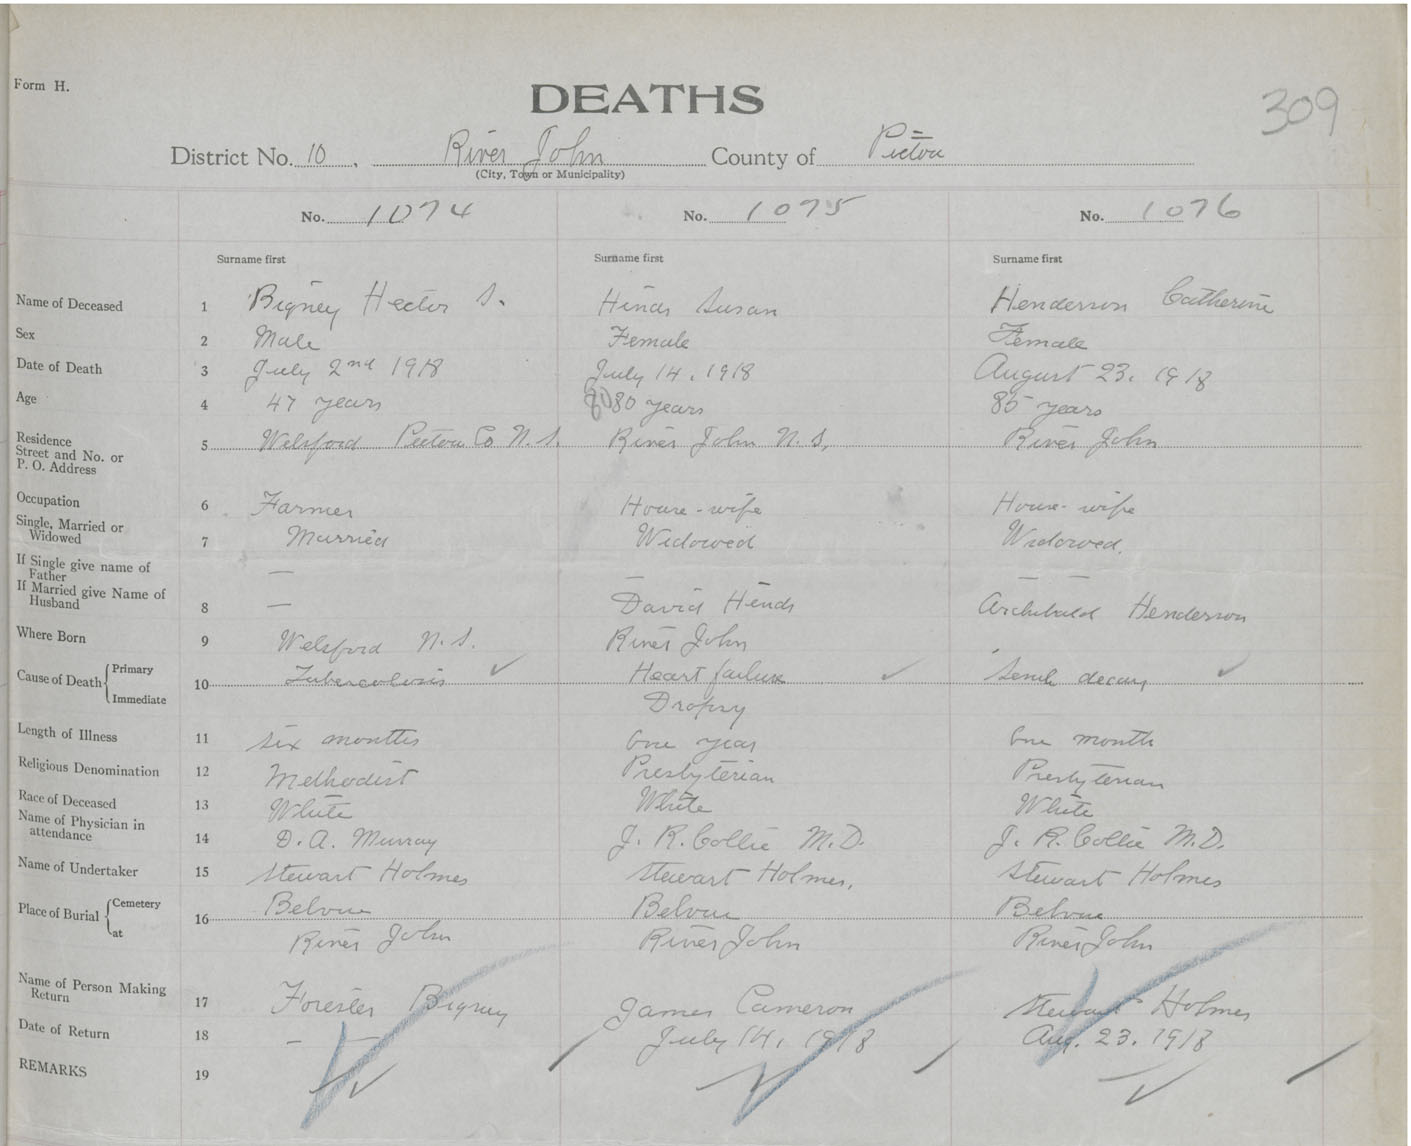 Form H.
DEATHS
309
District No. 10, River John County of Pictou
(City, Town or Municipality)
No. 1074 No. 1075 No. 1076
Surname first Surname first Surname first
Name of Deceased 1 Bigney Hector S. Hinds Susan Henderson Catherine
Sex 2 Male Female Female
Date of Death 3 July 2nd 1918 July 14, 1918 August 23. 1918
Age 4 47 years 80 years 85 years
Residence
Street and No. or
P. O. Address 5 Welsford Pictou Co N. S. River John N. S, River John
Occupation 6 Farmer House-wife House-wife
Single, Married or
Widowed 7 Married Widowed Widowed.
If Single give name of
Father — — — —
If Married give Name of
Husband 8 — David Hinds Archibald Henderson
Where Born 9 Welsford N. S. River John
Cause of Death { Primary
Immediate 10 Tuberculosis ✓ Heart failure ✓ Senile decay ✓
Dropsy
Length of Illness 11 six months One year One month
Religious Denomination 12 Methodist Presbyterian Presbyterian
Race of Deceased 13 White White White
Name of Physician in
attendance 14 D. A. Murray J. R. Collie M. D. J. R. Collie M. D.
Name of Undertaker 15 Stewart Holmes Stewart Holmes, Stewart Holmes
Place of Burial { Cemetery
at 16 Belvue Belvue Belvue
River John River John River John
Name of Person Making
Return 17 Forester Bigney James Cameron Stewart Holmes
Date of Return 18 — — July 14, 1918 Aug. 23. 1918
REMARKS 19